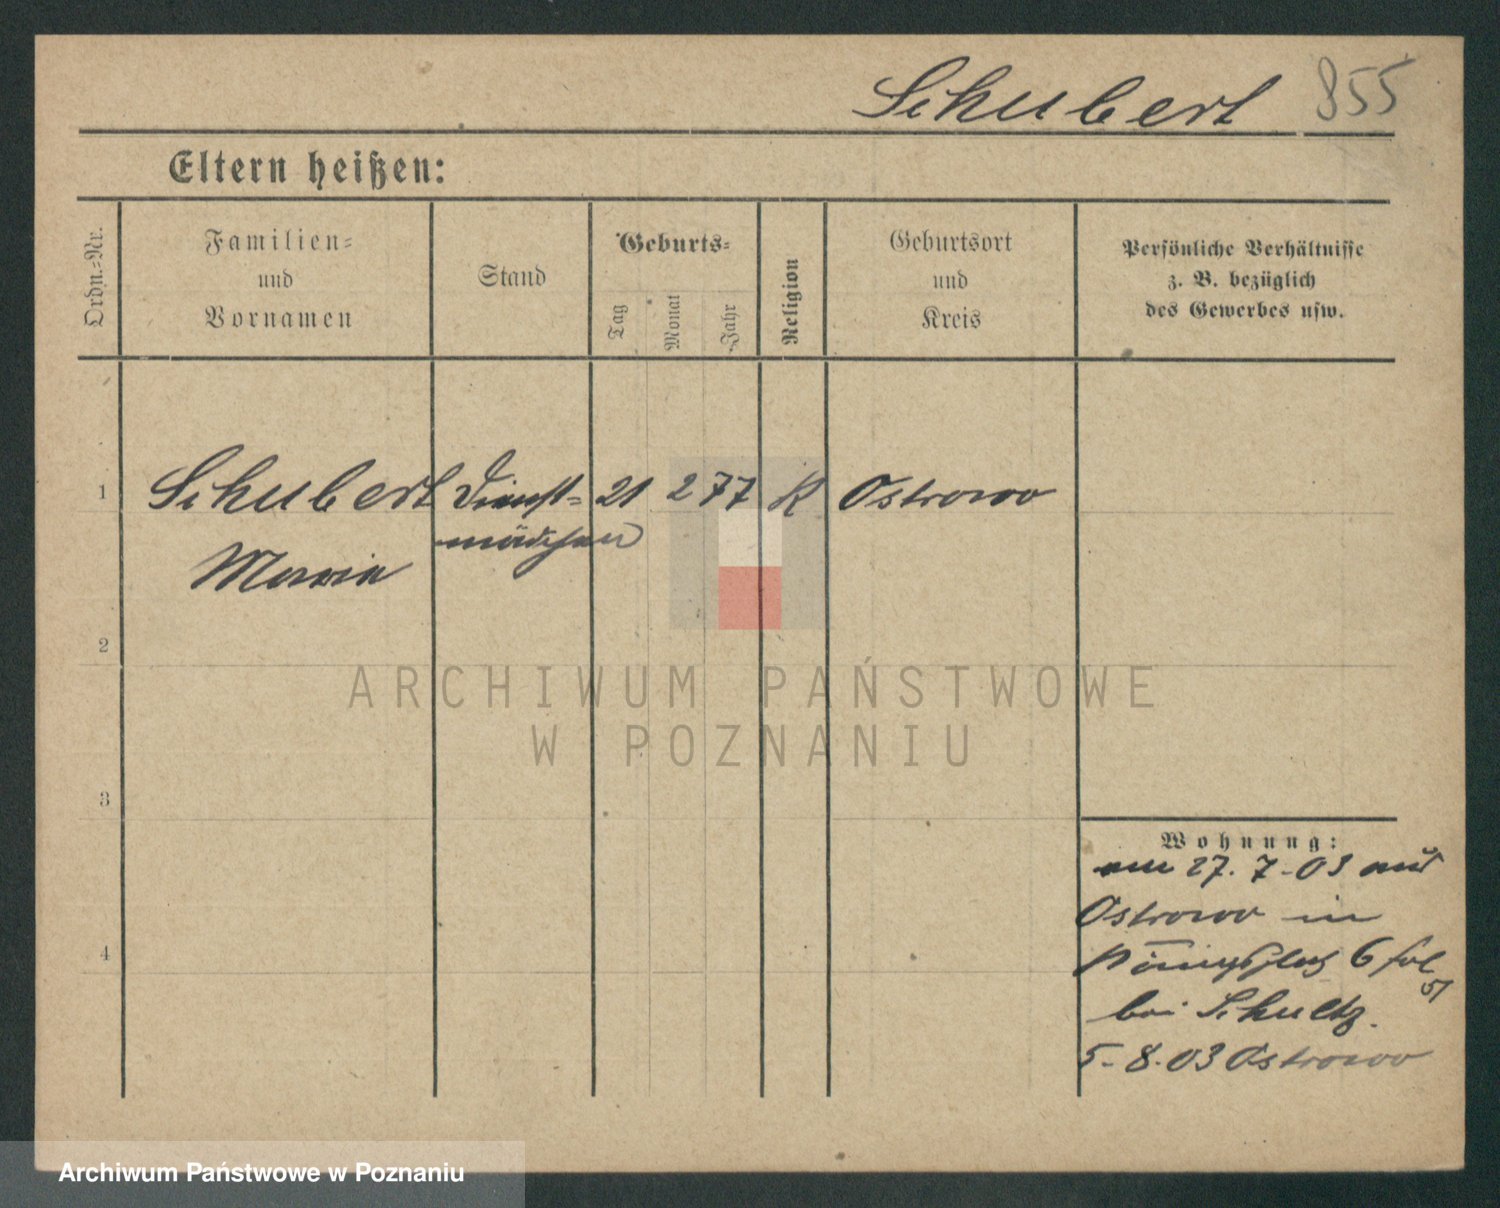 Schubert 855
Eltern heißen:
Ordn.-Nr.
Familien-
und
Vornamen
Stand
Geburts-
Tag
Monat
Jahr
Religion
Geburtsort
und
Kreis
Persönliche Verhältnisse
z. B. bezüglich
des Gewerbes usw.
1 Schubert Dienst- 21 2 77 K Ostrowo
mädchen
Maria
2
ARCHIWUM PAŃSTWOWE
W POZNANIU
3
Wohnung:
am 27. 7. 03 aus
Ostrowo in
4
Königsplatz 6
bei Schultz.
5. 8. 03 Ostrowo
Archiwum Państwowe w Poznaniu